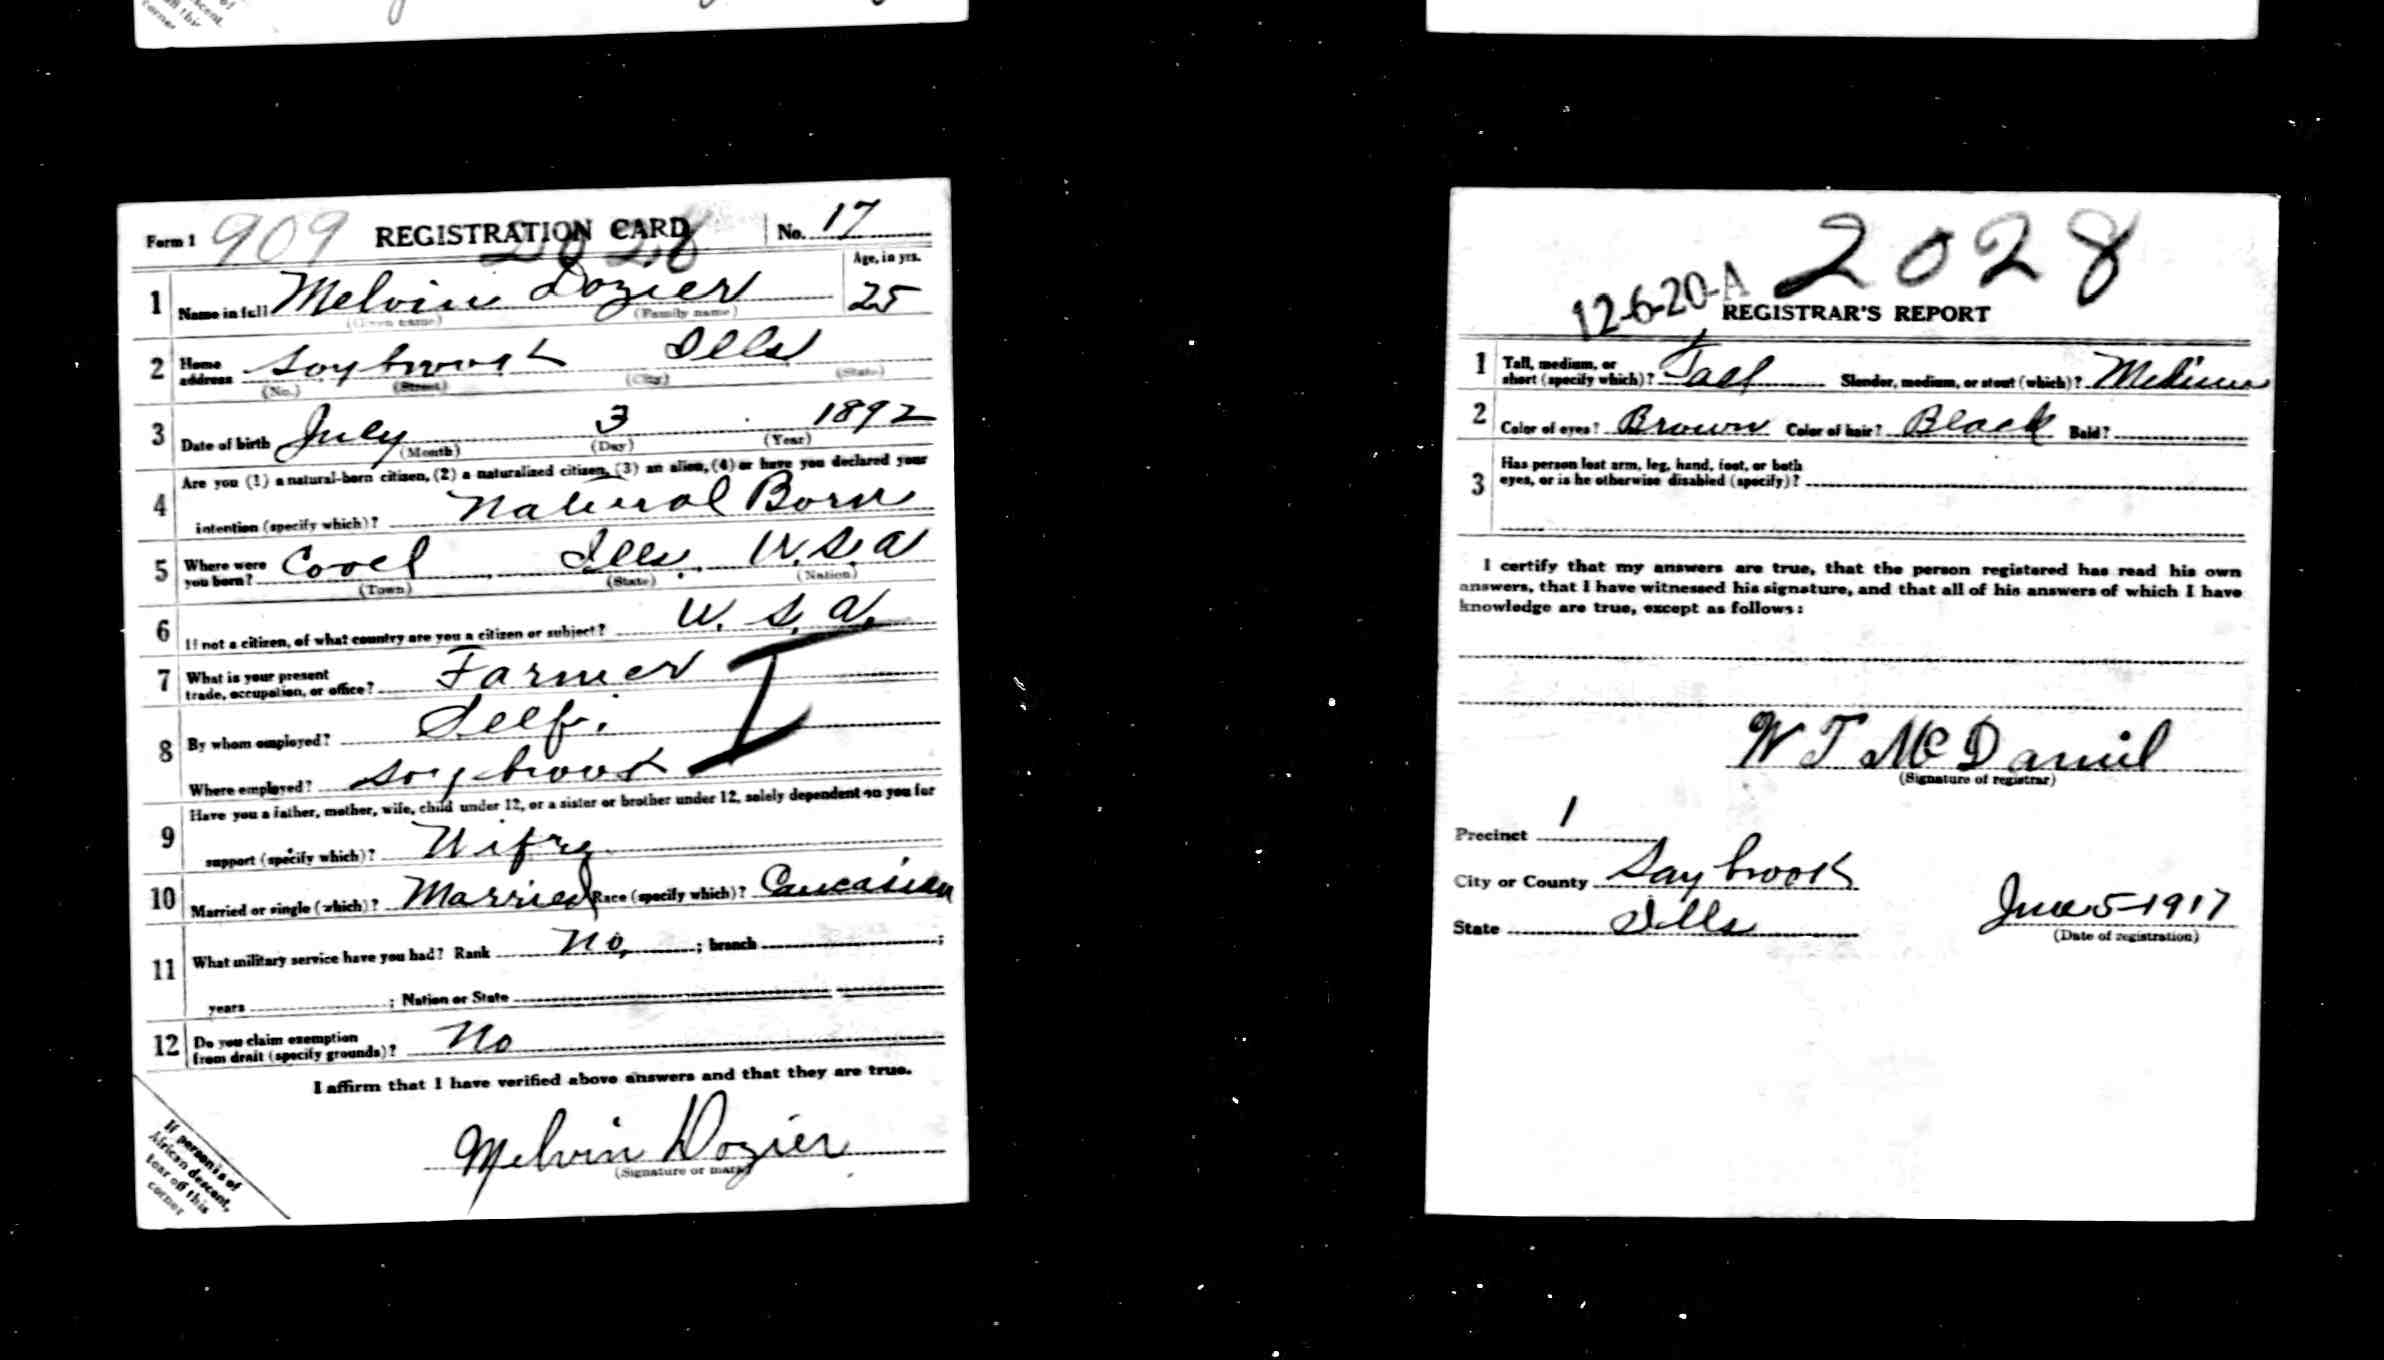 corner
Form 1 909 REGISTRATION CARD No. 17
2028
Age, in yrs.
1 Name in full Melvin Dozier 25
(Given name) (Family name)
2 Home address Saybrook Ills
(No.) (Street) (City) (State)
3 Date of birth July 3 1892
(Month) (Day) (Year)
4 Are you (1) a natural-born citizen, (2) a naturalized citizen, (3) an alien, (4) or have you declared your
intention (specify which)? Natural Born
5 Where were you born? Covel Ills. U.S.A
(Town) (State) (Nation)
6 If not a citizen, of what country are you a citizen or subject? U. S. A.
7 What is your present trade, occupation, or office? Farmer
8 By whom employed? Self.
Where employed? Saybrook
9 Have you a father, mother, wife, child under 12, or a sister or brother under 12, solely dependent on you for
support (specify which)? Wife
10 Married or single (which)? Married Race (specify which)? Caucasian
11 What military service have you had? Rank No, ; branch ;
years ; Nation or State
12 Do you claim exemption from draft (specify grounds)? No
I affirm that I have verified above answers and that they are true.
Melvin Dozier
(Signature or mark)
If person is of
African descent,
tear off this
corner
2028
12-6-20-A
REGISTRAR'S REPORT
1 Tall, medium, or short (specify which)? Tall Slender, medium, or stout (which)? Medium
2 Color of eyes? Brown Color of hair? Black Bald?
3 Has person lost arm, leg, hand, foot, or both
eyes, or is he otherwise disabled (specify)?
I certify that my answers are true, that the person registered has read his own
answers, that I have witnessed his signature, and that all of his answers of which I have
knowledge are true, except as follows:
W T McDaniel
(Signature of registrar)
Precinct 1
City or County Saybrook
State Ills
June 5-1917
(Date of registration)